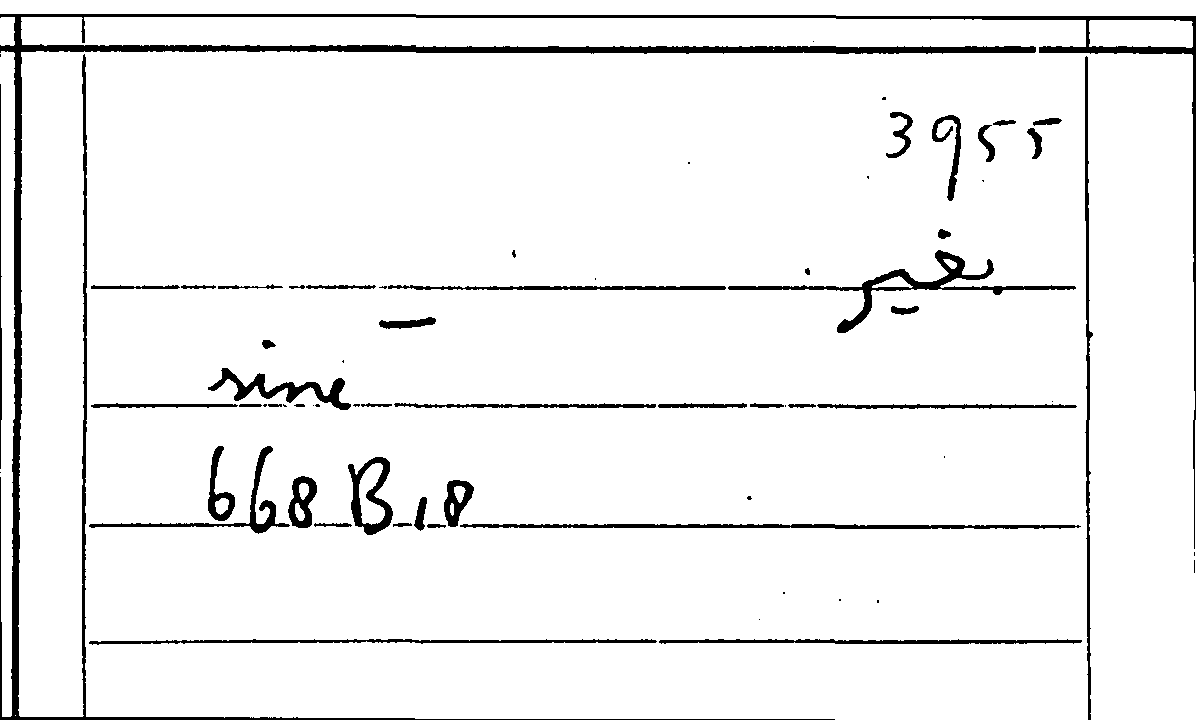 3955
بغير
sine
668 B 18